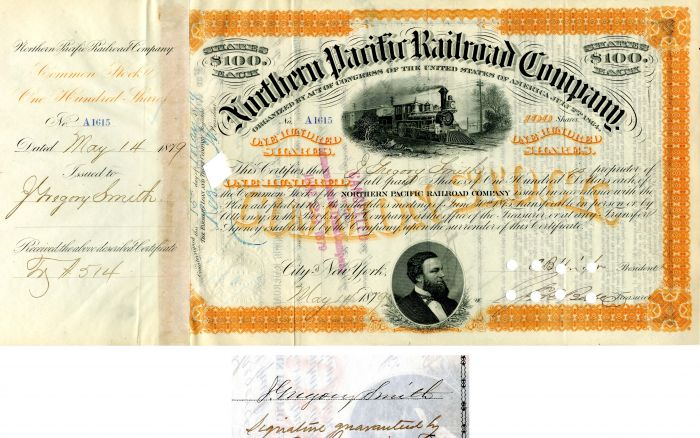 Northern Pacific Railroad Company
Common Stock
One Hundred Shares
No. A1615
Dated May 14 1879
Issued to
J Gregory Smith
Received the above described Certificate
514
SHARES
$100.
EACH
SHARES
$100.
EACH
Northern Pacific Railroad Company
ORGANIZED BY ACT OF CONGRESS OF THE UNITED STATES OF AMERICA JULY 2nd 1864.
No. A1615
100 Shares
ONE HUNDRED
SHARES.
ONE HUNDRED
SHARES.
This Certifies that J Gregory Smith is proprietor of
ONE HUNDRED full paid Shares of One Hundred Dollars each of
the Common Stock of the NORTHERN PACIFIC RAILROAD COMPANY issued in accordance with the
Plan adopted at the of June 30th 1875 transferable in person or by
Attorney on the books of the Company at the office of the Treasurer or at any Transfer
Agency established by the Company upon the surrender of this Certificate.
City of New York,
May 14 1879
President
Treasurer
J Gregory Smith
Signature guaranteed by